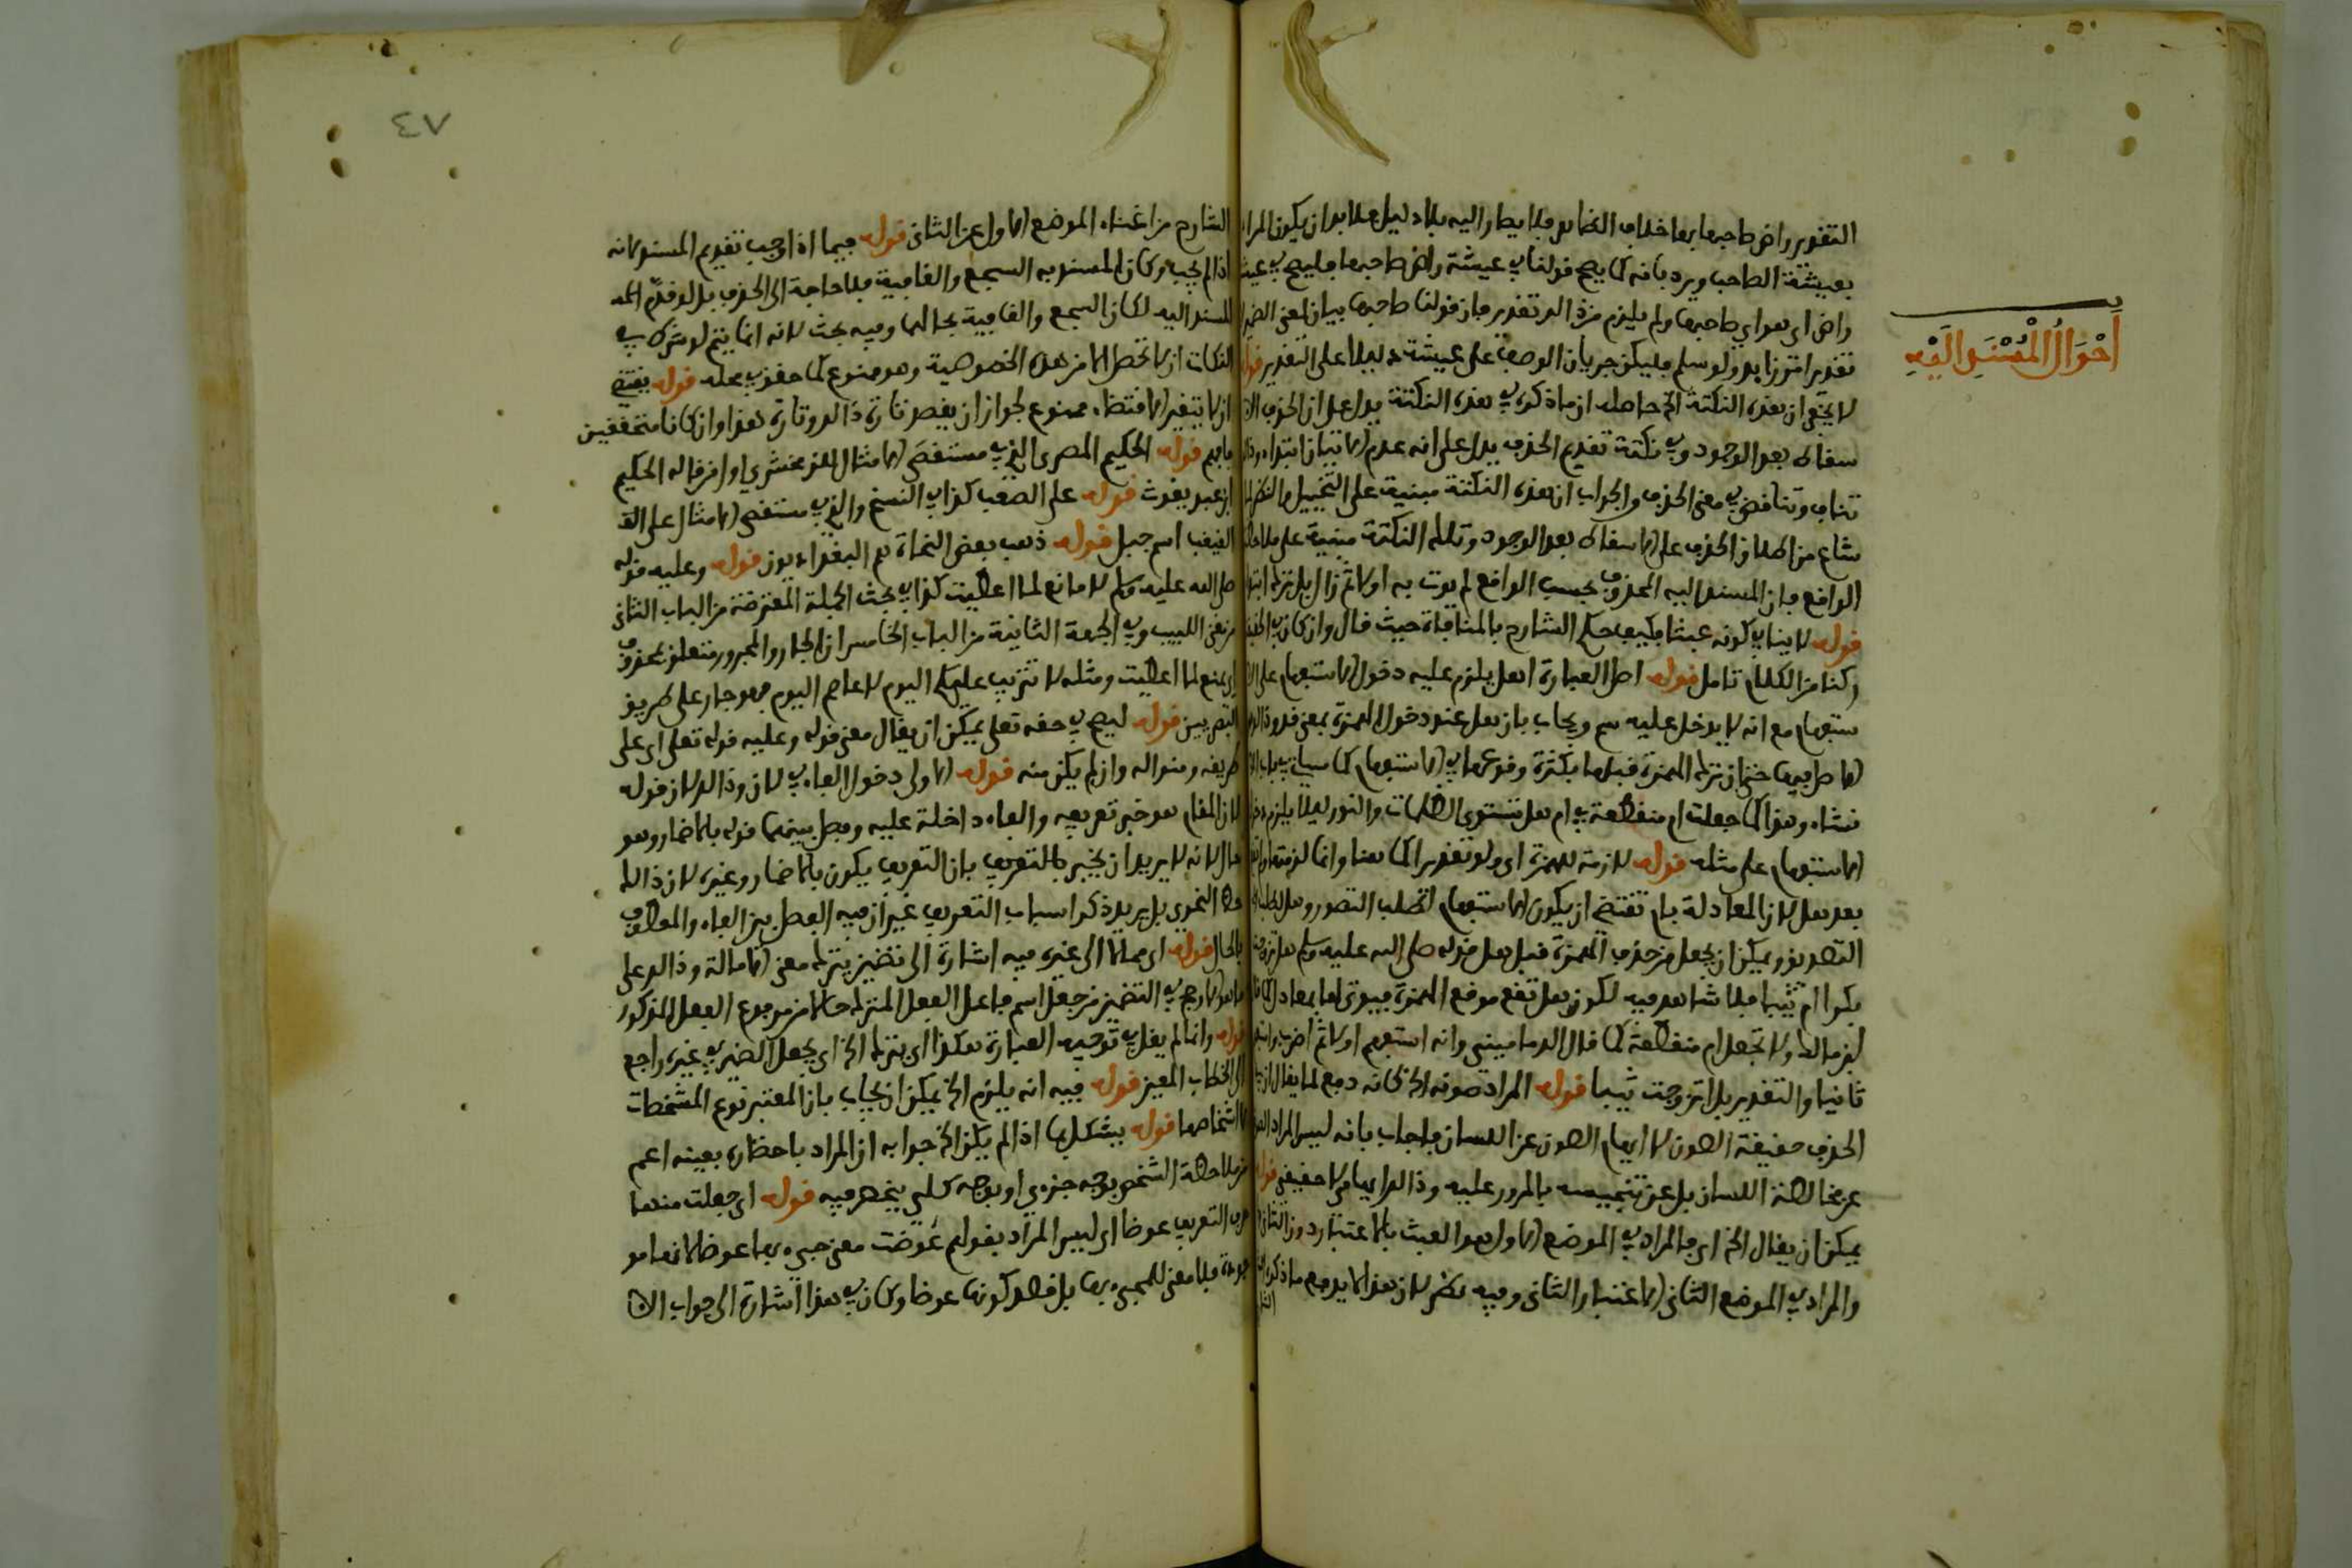 احوال المسند اليه
التقدير راض صاحبها بها خلاف الظاهر فلا يصار اليه بلا دليل فلا بد ان يكون المراد
بعيشة الصاحب ويرد بأنه كما يصح قولنا في عيشة راض صاحبها فليصح في
راض اي هو اي صاحبها ولم يلزم من ذلك تقدير فان قولنا صاحبها بيان لمعنى الضمير
ولو سلم فليكن جريان الوصف على عيشة دليلا على التقدير قوله
لا يخفى ان هذه النكتة الخ حاصله ان ما ذكر في هذه النكتة يدل على ان الحذف
سقاط بعد الوجود وفي نكتة تقديم الحذف يدل على انه عدم الاتيان ابتداء
تناف وتناقض في معنى الحذف والجواب ان هذه النكتة مبنية على التخييل
شاع من اطلاق الحذف على الاسقاط بعد الوجود وتلك النكتة مبنية على
الواقع فان المسند اليه المحذوف بحسب الواقع لم يوت به اولا ثم زال بل ترك
قوله لا ينافي كونه عبثا فكيف حكم الشارح بالمنافاة حيث قال وان كان في الحقيقة
ركنا من الكلام تامل قوله اصل العبارة اهل يلزم عليه دخول الاستفهام على
ستفهام مع انه لا يدخل عليه سم ويجاب بان هل عند دخول الهمزة بمعنى قد
الاصل فيها حتى ان ترك الهمزة قبلها بكثرة وقوعها في الاستفهام كما سياتي في باب
نشاء وهذا كما جعلت ام منقطعة في ام هل تستوي الظلمات والنور ليلا يلزم
الاستفهام على مثله قوله لازمة للهمزة اي ولو تقديرا كما هنا وانما لزمتها
بعد هل لان المعادلة بام تقتضي ان يكون الاستفهام لطلب التصور وهل لطلب
التصديق ويمكن ان يجعل من حذف الهمزة قبل هل قوله صلى الله عليه وسلم هل
بكرا ام ثيبا فلا شاهد فيه لكون هل تقع موقع الهمزة فيوتى لها بمعادل
ولا تجعل ام منقطعة كما قال الدماميني وانه استفهم اولا ثم اضرب
ثانيا والتقدير بل اتزوجت ثيبا قوله المراد صونه الخ كانه دفع لما يقال ان
الحذف حقيقة الصون لا ايهام الصون عن اللسان فاجاب بانه ليس المراد
عن مخالطة اللسان بل عن تنجيسه بالمرور عليه وذلك ايهامي لا حقيقي قوله
يمكن ان يقال الخ اي فالمراد في الموضع الاول هو العبث بالاعتبار دون الثاني
والمراد في الموضع الثاني الاعتبار الثاني وفيه نظر لان هذا لا يدفع ما ذكره
٤٧
الشارح من اغناء الموضع الاول عن الثاني قوله فيما اذا وجب تقديم المسند لانه
اذا لم يجب وكان المسند به السجع والقافية فلا حاجة الى الحذف بل لو قدم
المسند اليه لكان السجع والقافية بحالها وفيه بحث لانه انما يتم لو شرط في
النكات ان لا تحصل الا من هذه الخصوصية وهو ممنوع كما حقق في محله قوله يقتضي
ان لا يتغير الاقتضاء ممنوع لجواز ان يقصر تارة ذلك وتارة هذا وان كانا متحققين
فافهم قوله الحكيم المصري الذي في مستقصى الامثال للزمخشري اول من قاله الحكيم
ابن عبد يغوث قوله على الصغب كذا في النسخ والذي في مستقصى الامثال على
الغبغب اسم جبل قوله ذهب بعض النحاة هم البغداديون قوله وعليه قوله
صلى الله عليه وسلم لا مانع لما اعطيت كذا في بحث الجملة المعترضة من الباب الثاني
من مغني اللبيب وفي الجهة الثانية من الباب الخامس ان الجار والمجرور متعلق بمحذوف
اي يمنع لما اعطيت ومثله لا تثريب عليكم اليوم لا عاصم اليوم فهو جار على طريق
البصريين قوله ليصح في حقه تعلى يمكن ان يقال معنى قوله وعليه قوله تعلى اي على
طريقه ومنواله وان لم يكن منه قوله الاولى دخول الفاء في لان وذلك لان قوله
لان المقام هو خبر تعريفه والفاء داخلة عليه وفصل بينهما قوله بالاضمار وهو
حال لانه لا يريد ان يخبر بالتعريف بان التعريف يكون بالاضمار وغيره لان ذلك
حظ النحوي بل يريد ذكر اسباب التعريف غير ان فيه الفصل بين الفاء والمعطوف
بالحال قوله اي ممالا الى غيره فيه اشارة الى تضمين يترك معنى الامالة وذلك على
ما هو الارجح في التضمين من جعل اسم فاعل الفعل المتروك حالا من مرفوع الفعل المذكور
قوله وانما لم يقل في توجيه العبارة هكذا اي يترك الخ اي يجعل الضمير في غيره راجع
الى الخطاب المعين قوله فيه انه يلزم الخ يمكن ان يجاب بان المعتبر نوع المشخصات
لا اشخاصها قوله يشكل بما اذا لم يكن الخ جوابه ان المراد باحضاره بعينه اعم
من ملاحظة الشخص بوجه جزئي او بوجه كلي ينحصر فيه قوله اي جعلت منهما
حرف التعريف عوضا اي ليس المراد بقولهم عوضت معنى جيء بها عوضا لانها
موجودة فلا معنى للمجيء بها بل قصد كونها عوضا وكان في هذا اشارة الى جواب